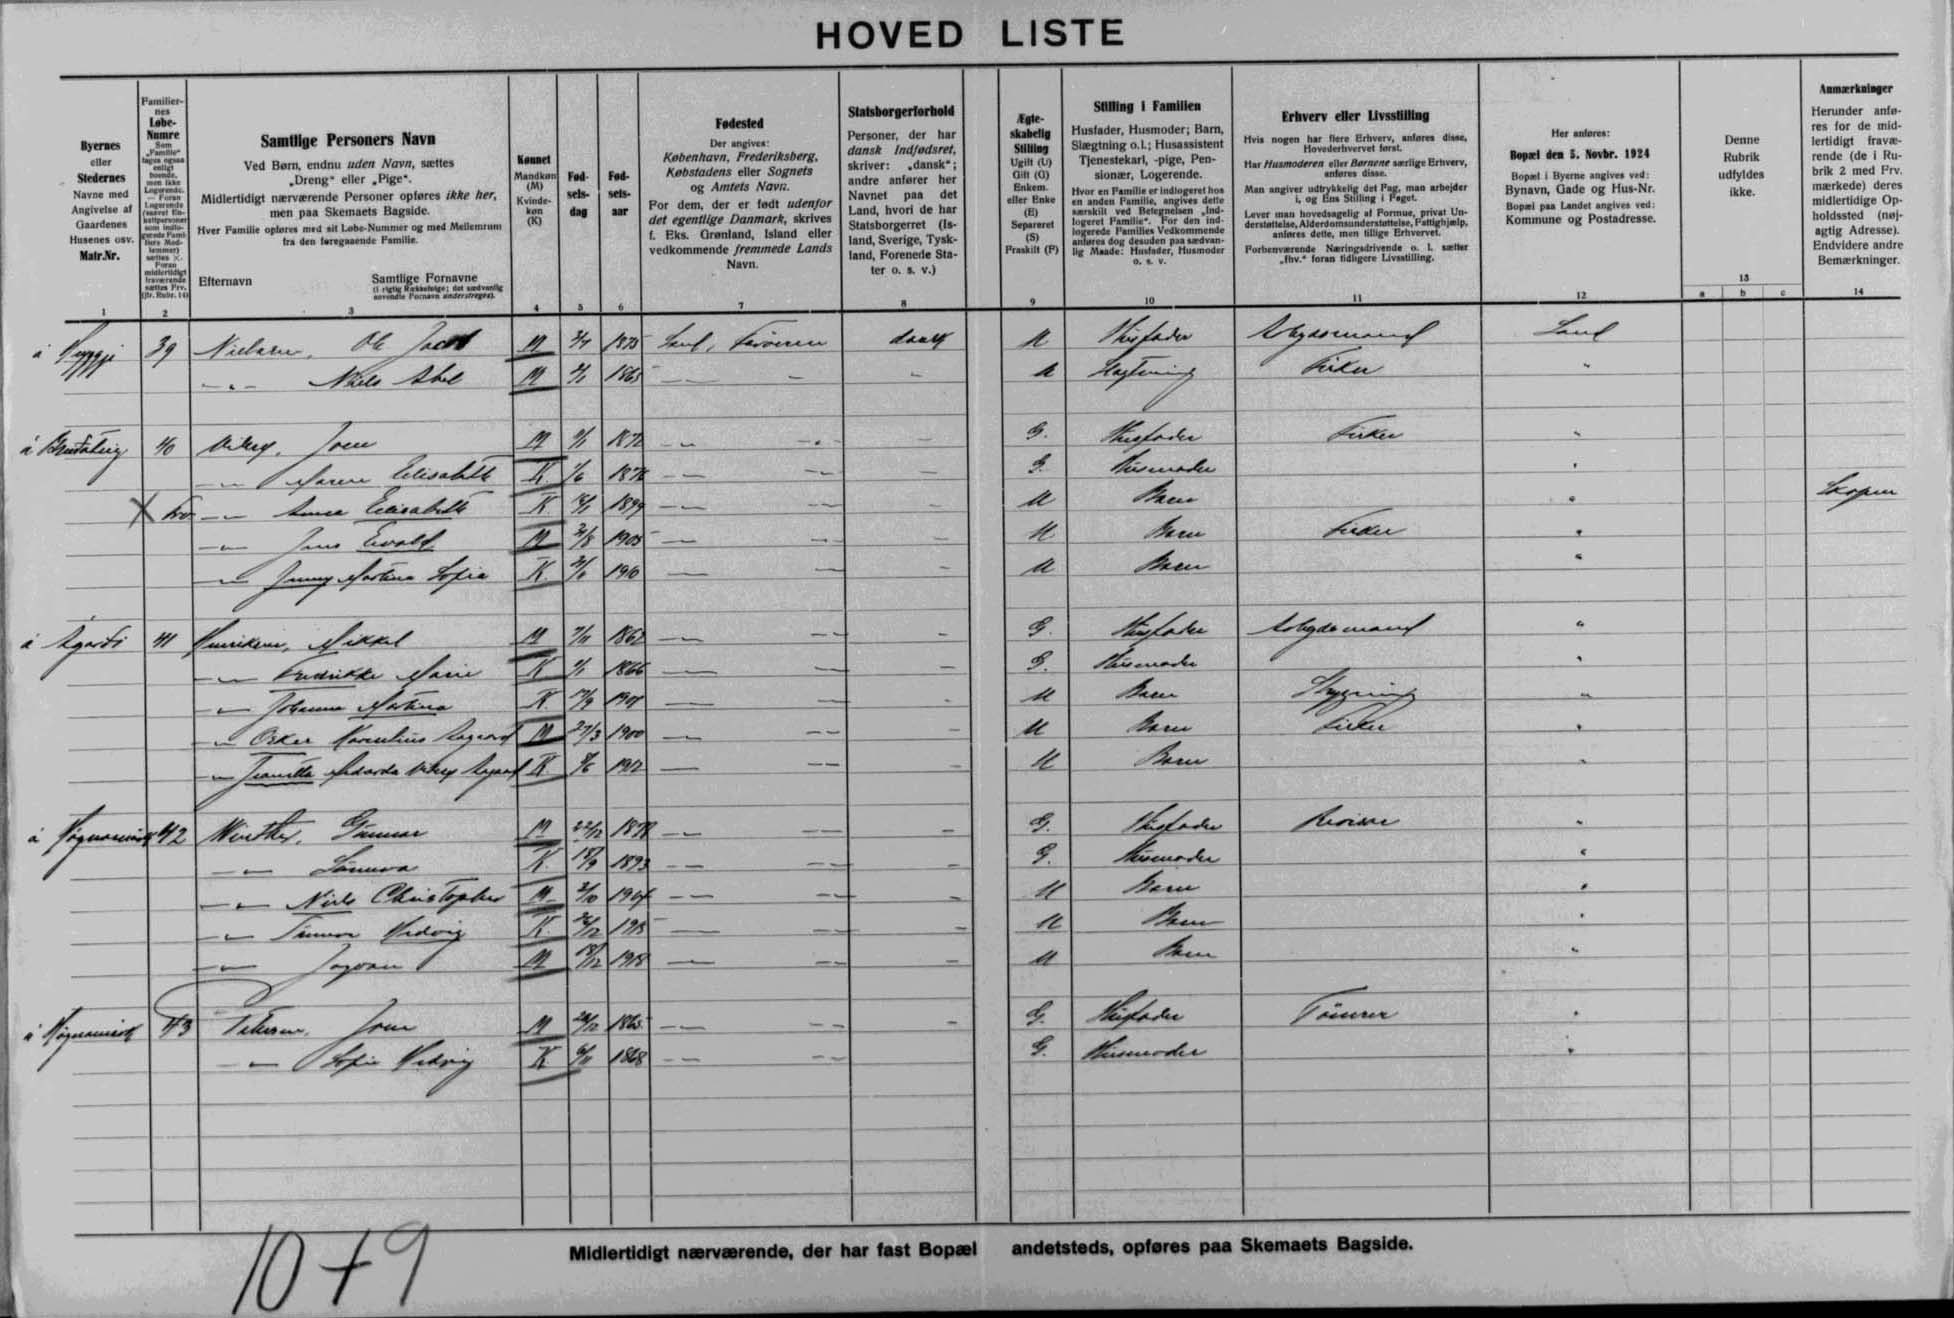 HOVED LISTE
Byernes
eller
Stedernes
Navne med
Angivelse af
Gaardenes
Husenes osv.
Matr.Nr.
1
Familier-
nes
Løbe-
Numre
Som
„Familie“
tages ogsaa
enligt
boende,
men ikke
Logerende.
— Foran
Logerende
sættes ×.
Foran
midlertidigt
fraværende
sættes Frv.
(jfr. Rubr. 14)
2
Samtlige Personers Navn
Ved Børn, endnu uden Navn, sættes
„Dreng“ eller „Pige“.
Midlertidigt nærværende Personer opføres ikke her,
men paa Skemaets Bagside.
Hver Familie opføres med sit Løbe-Nummer og med Mellemrum
fra den foregaaende Familie.
Efternavn
Samtlige Fornavne
(i rigtig Rækkefølge; det sædvanlig
anvendte Fornavn understreges).
3
Kønnet
Mandkøn
(M)
Kvinde-
køn
(K)
4
Fød-
sels-
dag
5
Fød-
sels-
aar
6
Fødested
Der angives:
København, Frederiksberg,
Købstadens eller Sognets
og Amtets Navn.
For dem, der er født udenfor
det egentlige Danmark, skrives
f. Eks. Grønland, Island eller
vedkommende fremmede Lands
Navn.
7
Statsborgerforhold
Personer, der har
dansk Indfødsret,
skriver: „dansk“;
andre anfører her
Navnet paa det
Land, hvori de har
Statsborgerret (Is-
land, Sverige, Tysk-
land, Forenede Sta-
ter o. s. v.)
8
Ægte-
skabelig
Stilling
Ugift (U)
Gift (G)
Enkem.
eller Enke
(E)
Separeret
(S)
Fraskilt (F)
9
Stilling i Familien
Husfader, Husmoder; Barn,
Slægtning o.l.; Husassistent
Tjenestekarl, -pige, Pen-
sionær, Logerende.
Hvor en Familie er indlogeret hos
en anden Familie, angives dette
særskilt ved Betegnelsen „Ind-
logeret Familie“. For den ind-
logerede Families Vedkommende
anføres dog desuden paa sædvan-
lig Maade: Husfader, Husmoder
o. s. v.
10
Erhverv eller Livsstilling
Hvis nogen har flere Erhverv, anføres disse,
Hovederhvervet først.
Har Husmoderen eller Børnene særlige Erhverv,
anføres disse.
Man angiver udtrykkelig det Fag, man arbejder
i, og Ens Stilling i Faget.
Lever man hovedsagelig af Formue, privat Un-
derstøttelse, Alderdomsunderstøttelse, Fattighjælp,
anføres dette, men tillige Erhvervet.
Forhenværende Næringsdrivende o. l. sætter
„fhv.“ foran tidligere Livsstilling.
11
Her anføres:
Bopæl den 5. Novbr. 1924
Bopæl i Byerne angives ved:
Bynavn, Gade og Hus-Nr.
Bopæl paa Landet angives ved:
Kommune og Postadresse.
12
Denne
Rubrik
udfyldes
ikke.
13
a b c
Anmærkninger
Herunder anfø-
res for de mid-
lertidigt fravæ-
rende (de i Ru-
brik 2 med Frv.
mærkede) deres
midlertidige Op-
holdssted (nøj-
agtig Adresse).
Endvidere andre
Bemærkninger.
14
39 Nielsen, Ole Jacob M 1875 Sand, Færøerne dansk U Husfader Arbejdsmand Sand
Niels Abel M 1865 U Slægtning Fisker
40 Viberg, Joen M 1872 G. Husfader Fisker
Maren Elisabeth K 1876 G. Husmoder
× Frv Anna Elisabeth K 1899 U Barn Skopen
Jens Evald M 1905 U Barn Fisker
Jenny Martina Sofia K 1910 U Barn
á Ágarði 41 Henriksen, Mikkel M 1862 G. Husfader Arbejdsmand
Fredrikke Marie K 1866 G. Husmoder
Johanna Martina K. U Barn
Osker Kornelius Aagaard M 27/3 1900 U Barn Fisker
K 1912 U Barn
42 Winther, Gunnar M 22/12 1878 G. Husfader
Sunneva K. 1893 G. Husmoder
Niels Christopher M U Barn
Hedvig K. U Barn
Jógvan M 18/12 1918 U Barn
43 Petersen, Joen M 1865 G. Husfader Tömrer
Sofie Hedvig K 1868 G. Husmoder
Midlertidigt nærværende, der har fast Bopæl andetsteds, opføres paa Skemaets Bagside.
10 + 9